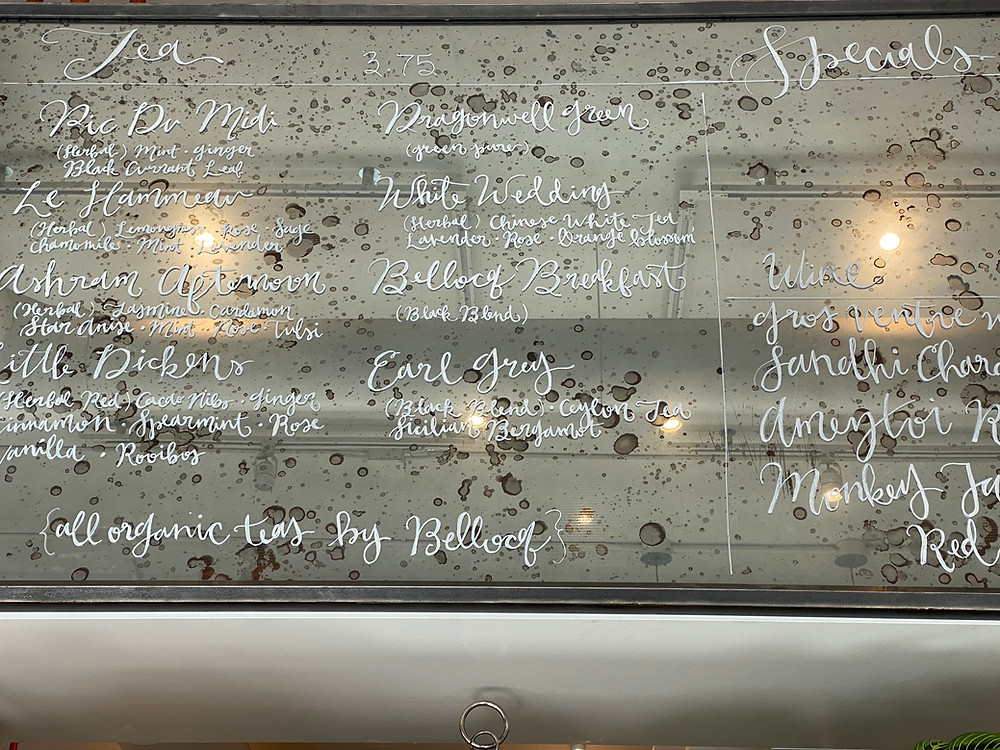 Tea 3.75
Pic Du Midi
(Herbal) Mint · ginger
Black Currant Leaf
Le Hammeau
(Herbal) Lemongrass · Rose · Sage
chamomile · Mint · Lavender
Ashram Afternoon
(Herbal) Jasmine · Cardamon
Star Anise · Mint · Rose · Tulsi
Little Dickens
(Herbal Red) Cacao Nibs · ginger
Cinnamon · Spearmint · Rose
Vanilla · Rooibos
Dragonwell green
(green pure)
White Wedding
(Herbal) Chinese White Tea
Lavender · Rose · Orange Blossom
Bellocq Breakfast
(Black Blend)
Earl Grey
(Black Blend) · Ceylon Tea
Sicilian Bergamot
{all organic teas by Bellocq}
Specials
Wine
gros ventre
Sandhi Chard
Ameztoi R
Monkey Ja
Red